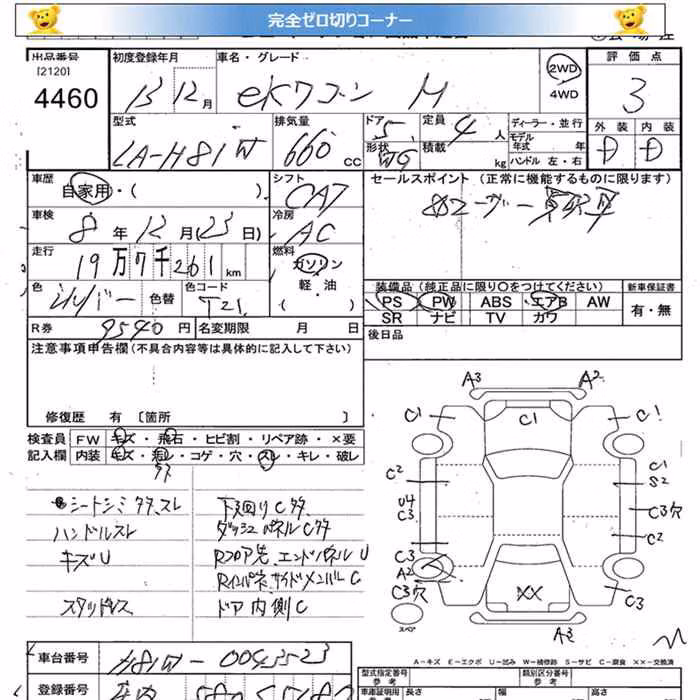 完全ゼロ切りコーナー
出品番号
[2120]
4460
初度登録年月
13 12月
車名・グレード
eKワゴン M
2WD
4WD
評価点
3
型式
LA-H81W
排気量
660 cc
ドア 5
形状 WG
定員 4 人
積載 kg
ディーラー・並行
モデル年式 年
ハンドル 左・右
外装 内装
D D
車歴
自家用・( )
シフト
CAT
セールスポイント (正常に機能するものに限ります)
車検
8年12月(23日)
冷房
AC
走行
19万7千261km
燃料
ガソリン
軽・油
( )
色
シルバー
色替
色コード
T21
装備品(純正品に限り○をつけてください)
PS PW ABS エアB AW
SR ナビ TV カワ
新車保証書
有・無
R券 9540円
名変期限 月 日
後日品
注意事項申告欄(不具合内容等は具体的に記入して下さい)
修復歴 有 [箇所 ]
検査員
記入欄
FW キズ・飛石・ヒビ割・リペア跡・×要
内装 キズ・汚レ・コゲ・穴・スレ・キレ・破レ
シートシミ タタ、スレ
ハンドルスレ
キズU
スタッドレス
下回りCタタ
ダッシュパネルCタタ
Rフロア先、エンドパネルU
Rインパネ、サイドメンバーC
ドア内側C
A3 A2
C1 C1 C1
C2 C1
S2
U4
C3 C3穴
C2
C3
A2
C3穴 XX C3
スペア
A3
A-キズ E-エクボ U-凹み W-補修跡 S-サビ C-腐食 XX-交換済
車台番号 H81W-0043523
登録番号
型式指定番号 類別区分番号
車庫証明用
参考 長さ 幅 高さ